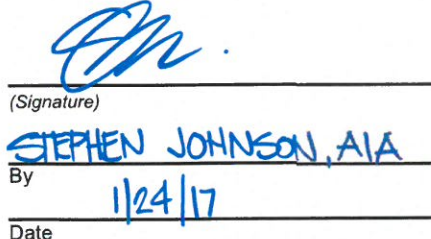 (Signature)
STEPHEN JOHNSON, AIA
By
1/24/17
Date